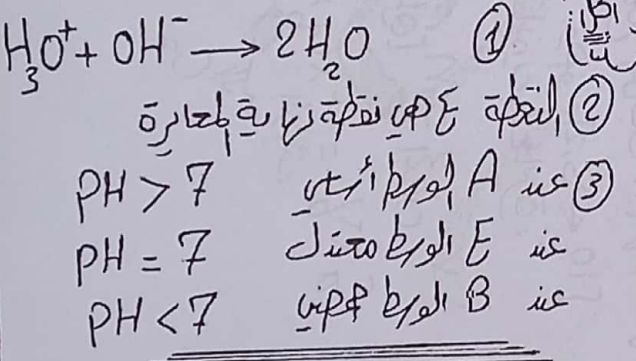 ① H₃O⁺ + OH⁻ → 2H₂O
② النقطة E هي نقطة نهاية المعايرة
③ عند A الوسط أساسي PH > 7
عند E الوسط معتدل PH = 7
عند B الوسط حمضي PH < 7